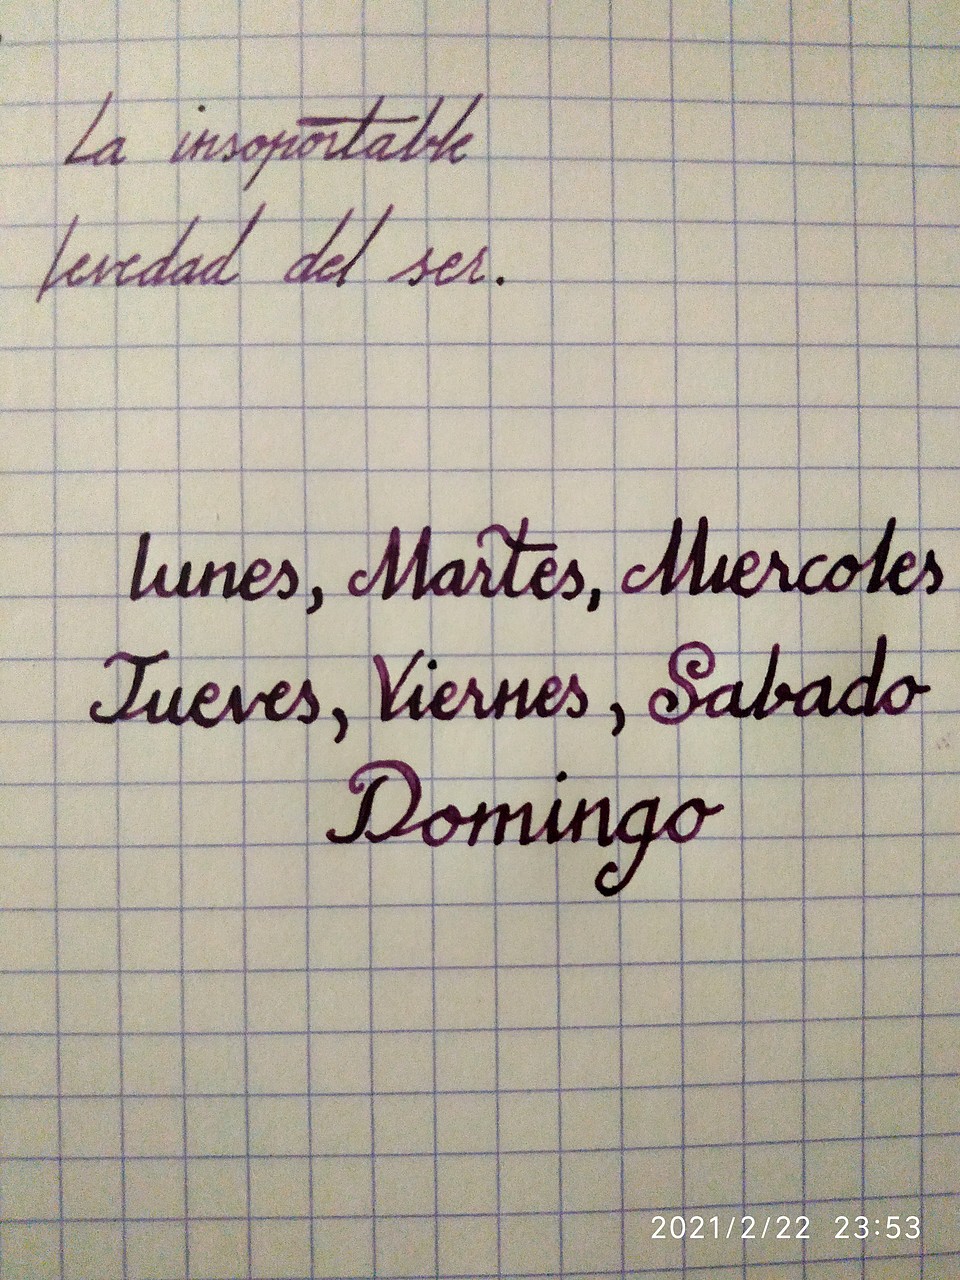 La insoportable
levedad del ser.
lunes, Martes, Miercoles
Jueves, Viernes, Sabado
Domingo
2021/2/22 23:53